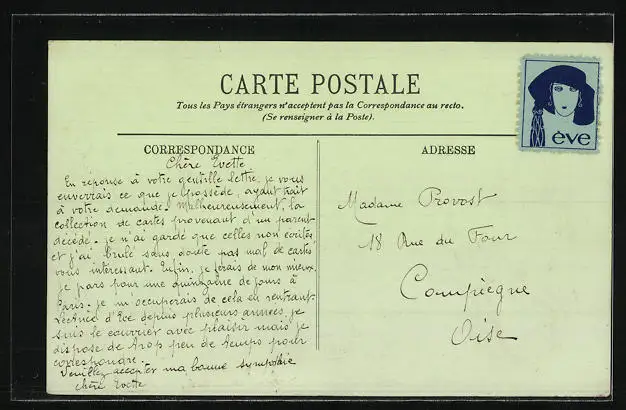 CARTE POSTALE
Tous les Pays étrangers n'acceptent pas la Correspondance au recto.
(Se renseigner à la Poste).
ève
CORRESPONDANCE
Chère Evette
En réponse à votre gentille lettre, je vous
enverrais ce que je possède, ayant trait
à votre demande. Malheureusement, la
collection de cartes provenant d'un parent
décédé. je n'ai gardé que celles non écrites
et j'ai brulé sans doute pas mal de cartes
vous interessant. Enfin, je ferais de mon mieux.
je pars pour une quinzaine de jours à
Paris. je m'occuperais de cela en rentrant.
Lectrice d'Eve depuis plusieurs années je
suis le courrier avec plaisir mais je
dispose de trop peu de temps pour
correspondre.
Veuillez accepter ma bonne sympathie
chère Evette
ADRESSE
Madame Provost
18 Rue du Four
Compiegne
Oise